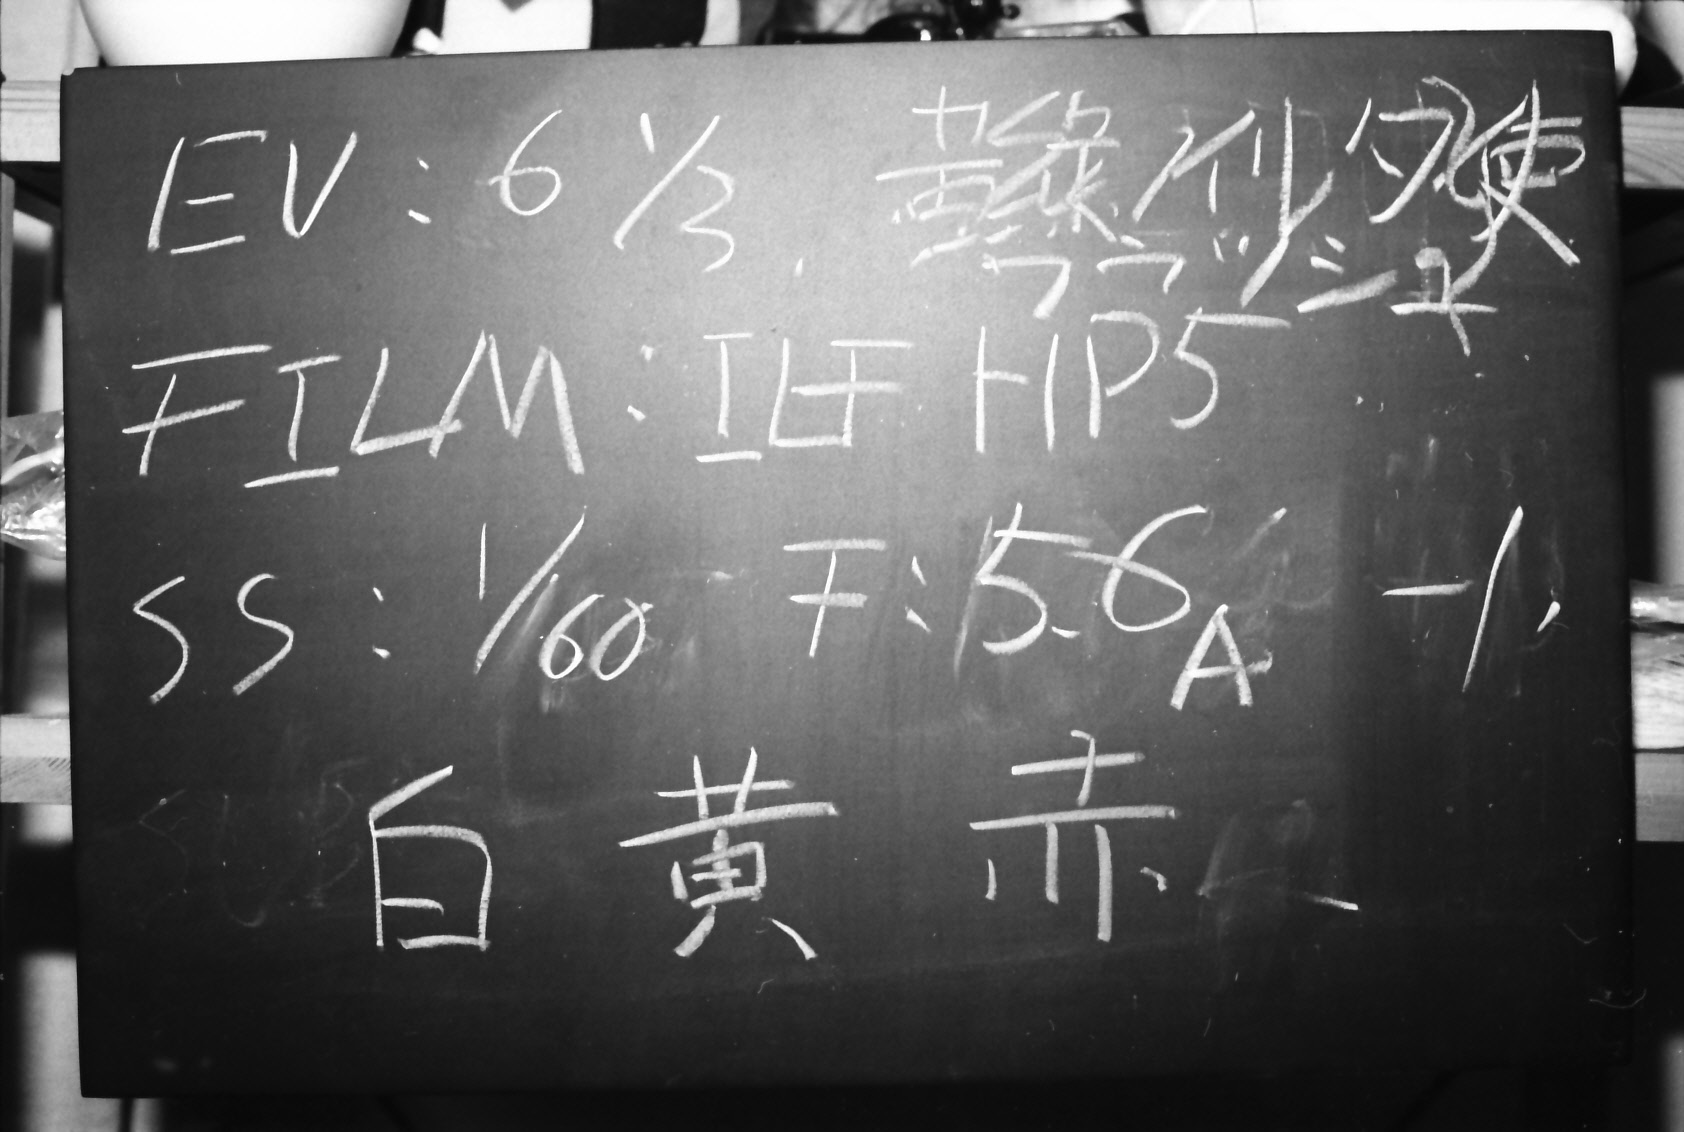 EV:6 1/3.
フラッシュ
FILM:ILF HP5
SS:1/60 F:5.6A -1.
白 黄 赤